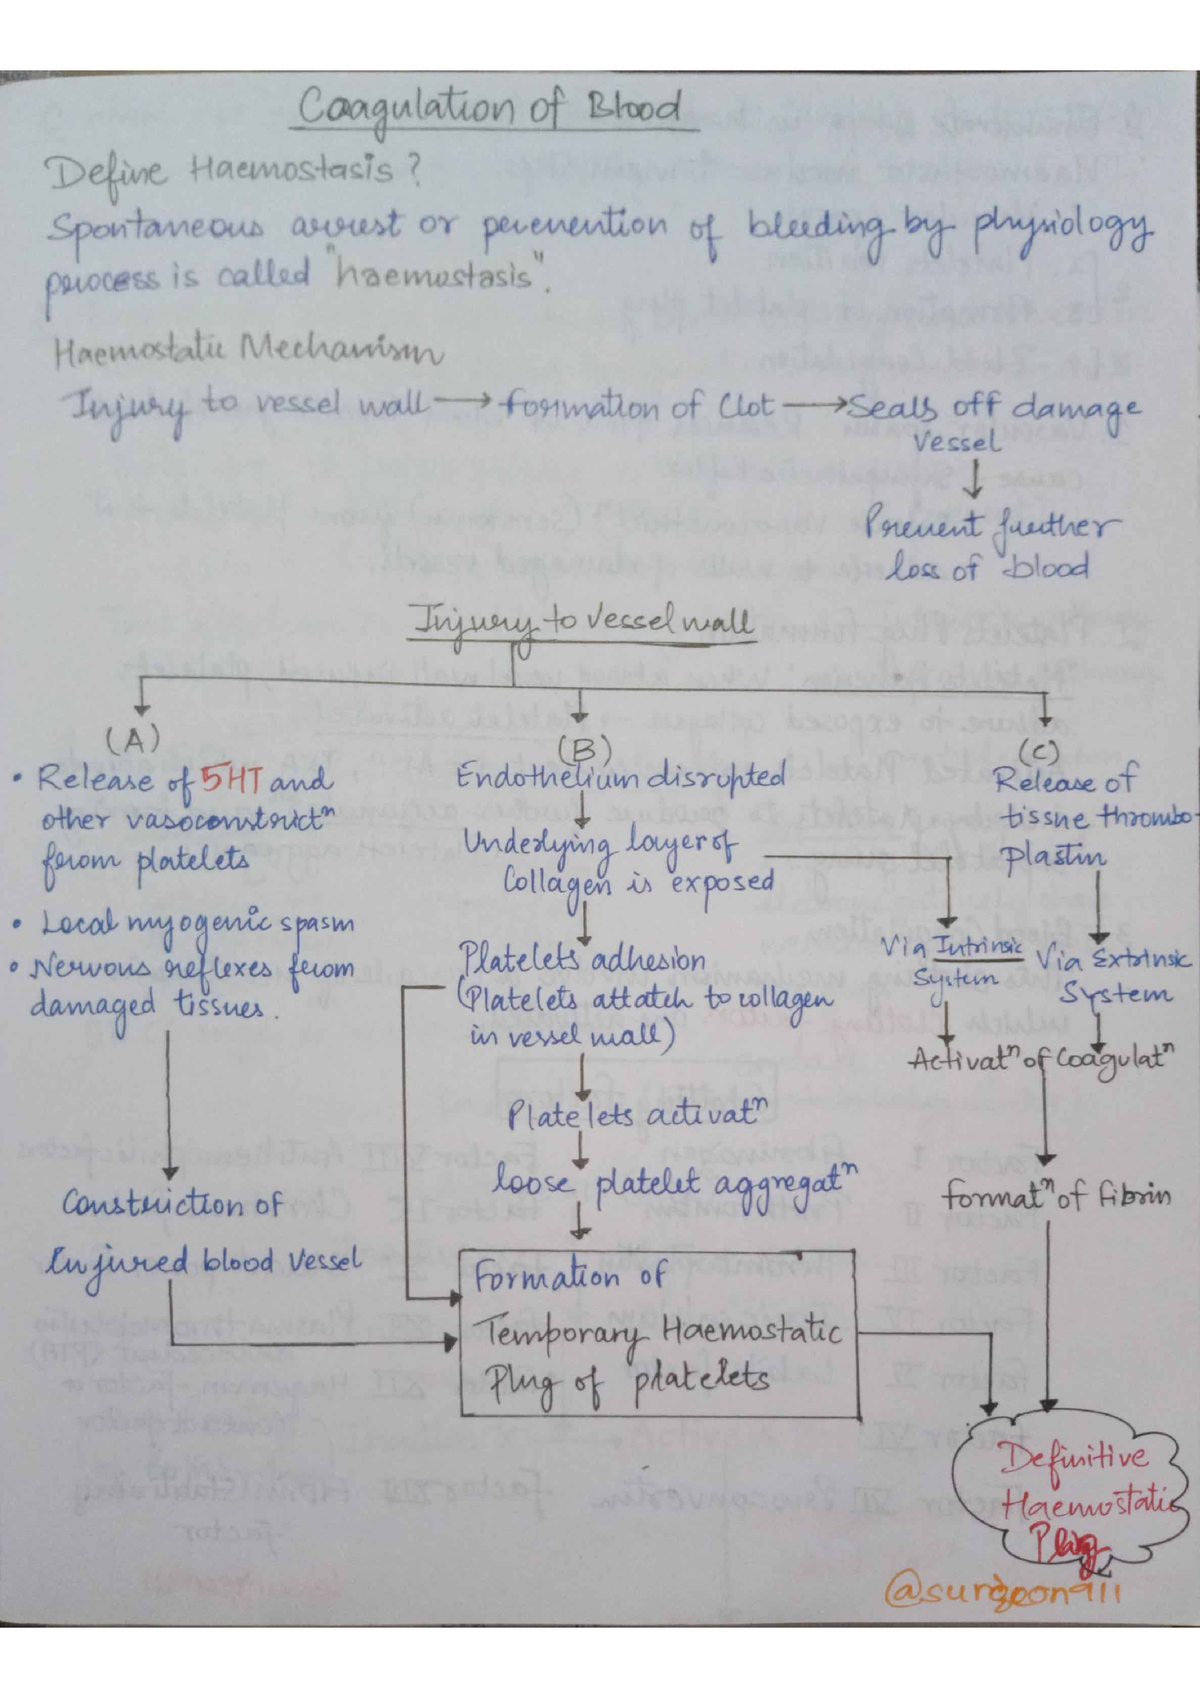 Coagulation of Blood
Define Haemostasis?
Spontaneous arrest or prevention of bleeding by physiology
process is called "haemostasis".
Haemostatic Mechanism
Injury to vessel wall → formation of Clot → Seals off damage
Vessel
↓
Prevent further
loss of blood
Injury to Vessel wall
(A)
• Release of 5HT and
other vasoconstructⁿ
from platelets
• Local myogenic spasm
• Nervous reflexes from
damaged tissues.
Constriction of
Injured blood Vessel
(B)
Endothelium disrupted
Underlying layer of
Collagen is exposed
Platelets adhesion
(Platelets attatch to collagen
in vessel wall)
Platelets activatⁿ
loose platelet aggregatⁿ
Formation of
Temporary Haemostatic
Plug of platelets
(C)
Release of
tissue thrombo-
plastin
Via Intrinsic
System
Via Extrinsic
System
Activatⁿ of Coagulatⁿ
formatⁿ of fibrin
Definitive
Haemostatic
Plug
@surgeon911